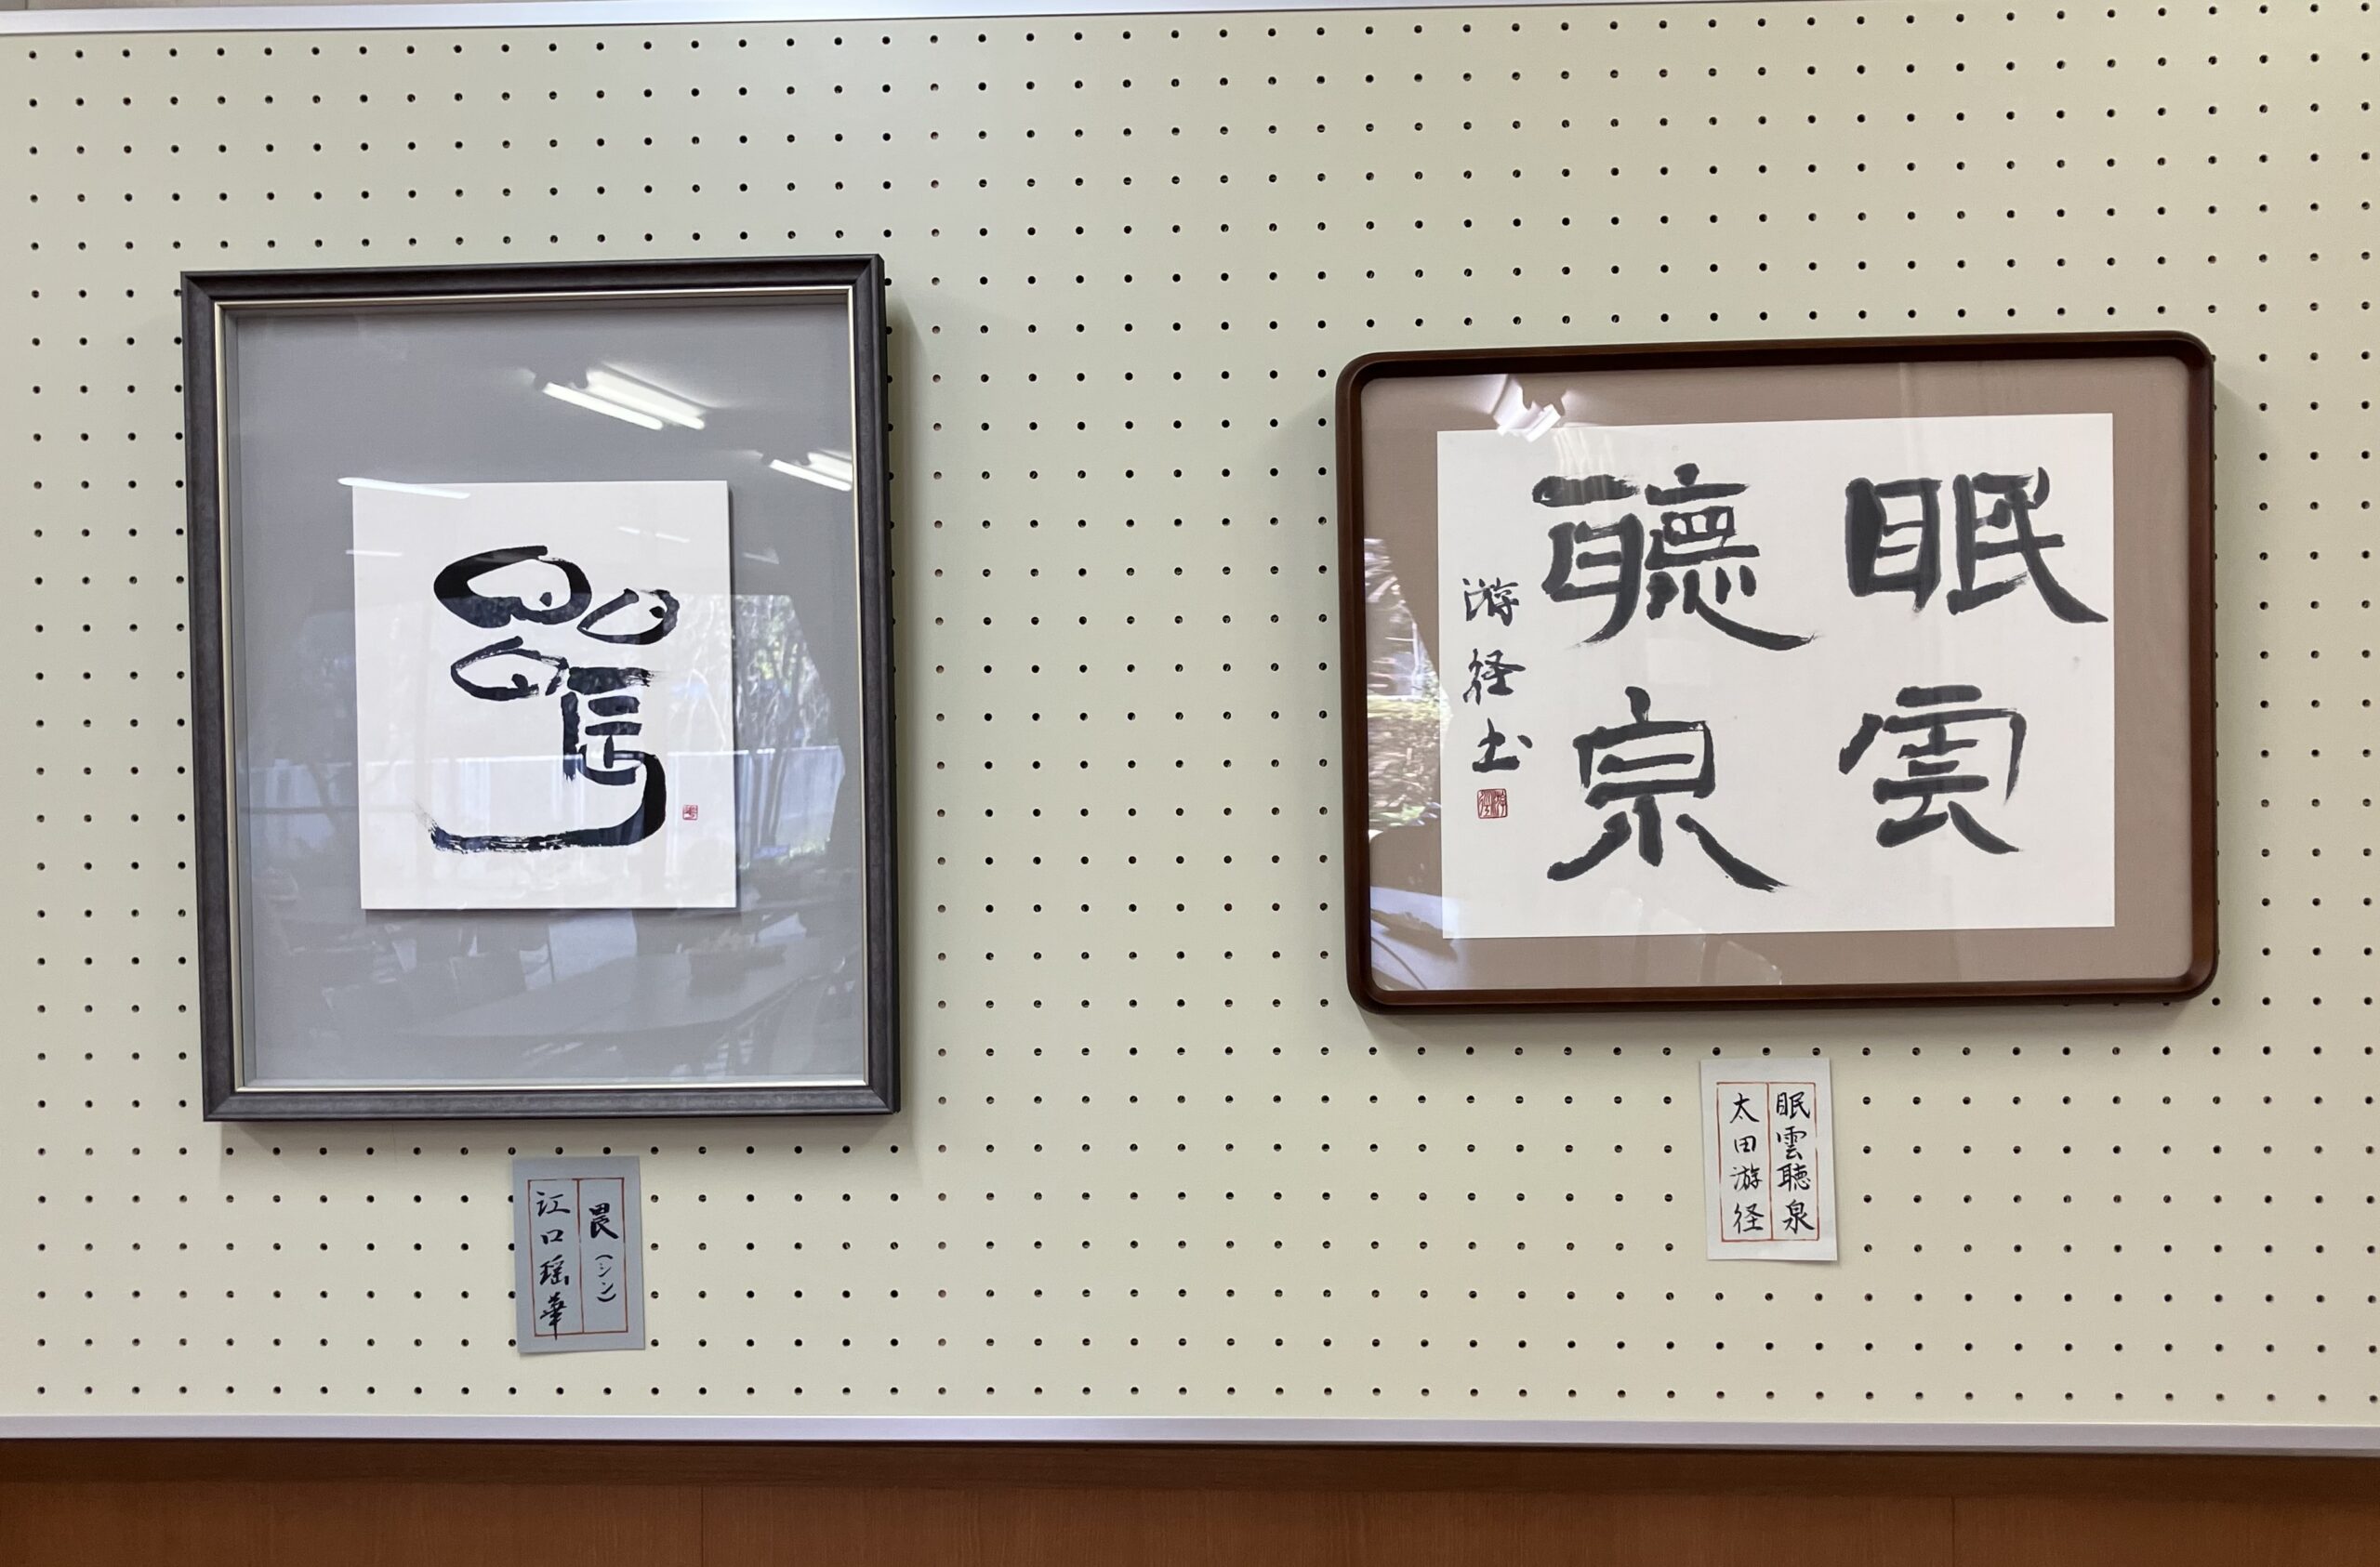 眠雲
聽泉
游径
眠雲聴泉
太田游径
（シン）
江口瑶華